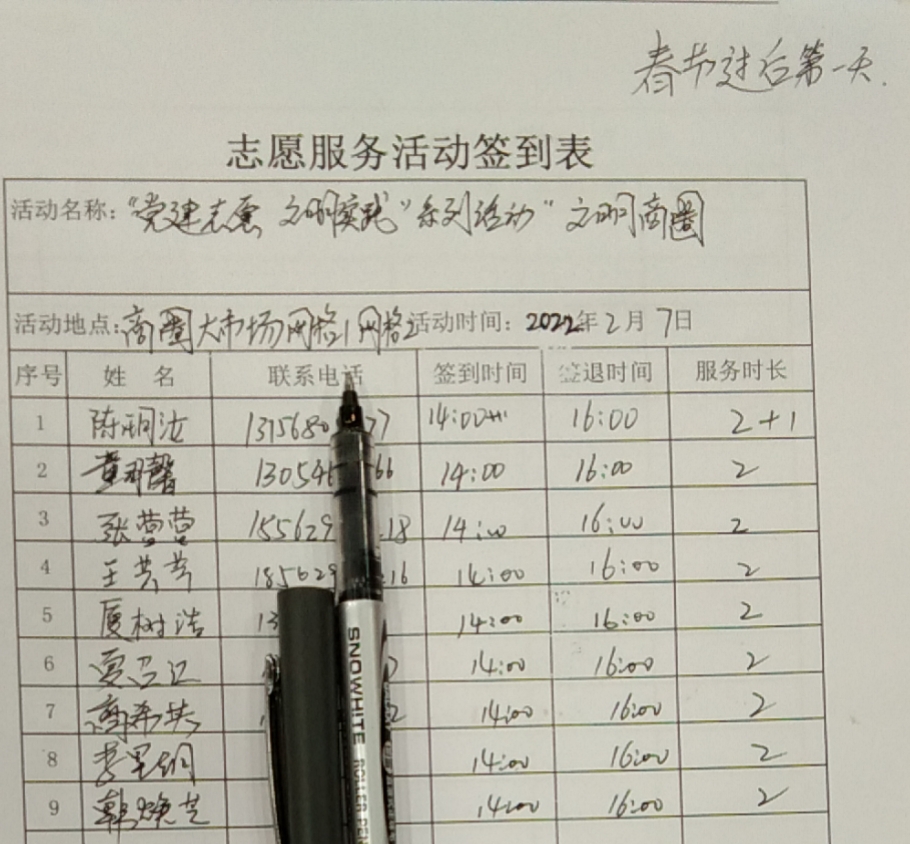 春节过后第一天.
志愿服务活动签到表
活动名称："党建志愿 文明实践"系列活动"文明商圈
活动地点：商圈大市场网格1网格2活动时间：2022年2月7日
序号 姓 名 联系电话 签到时间 签退时间 服务时长
1 陈 14:00 16:00 2+1
2 黄 馨 14:00 16:00 2
3 张营营 14:00 16:00 2
4 王芸芸 14:00 16:00 2
5 树浩 14:00 16:00 2
6 14:00 16:00 2
7 14:00 16:00 2
8 李 14:00 16:00 2
9 韩焕芝 14:00 16:00 2
SNOWHITE ROLLER PEN